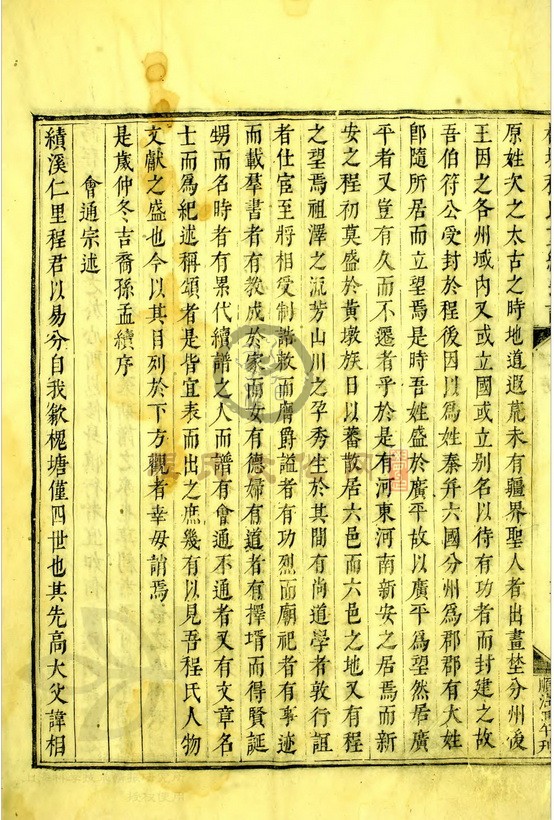 原姓次之太古之時地道遐荒未有疆界聖人者出畫埜分州後
王因之各州域內又或立國或立别名以待有功者而封建之故
吾伯符公受封於程後因以為姓秦并六國分州為郡郡有大姓
卽隨所居而立望焉是時吾姓盛於廣平故以廣平為望然居廣
平者又豈有久而不遷者乎於是有河東河南新安之居焉而新
安之程初莫盛於黄墩族日以蕃散居六邑而六邑之地又有程
之望焉祖澤之流芳山川之孕秀生於其間有尚道學者敦行誼
者仕宦至將相受制誥敕而膺爵謚者有功烈而廟祀者有事迹
而載羣書者有教成於家而女有德婦有道者有擇壻而得賢誕
甥而名時者有累代續譜之人而譜有會通不通者又有文章名
士而為紀述稱頌者是皆宜表而出之庶幾有以見吾程氏人物
文獻之盛也今以其目列於下方觀者幸毋誚焉
是歲仲冬吉裔孫孟續序
會通宗述
績溪仁里程君以易分自我歙槐塘僅四世也其先高大父諱相